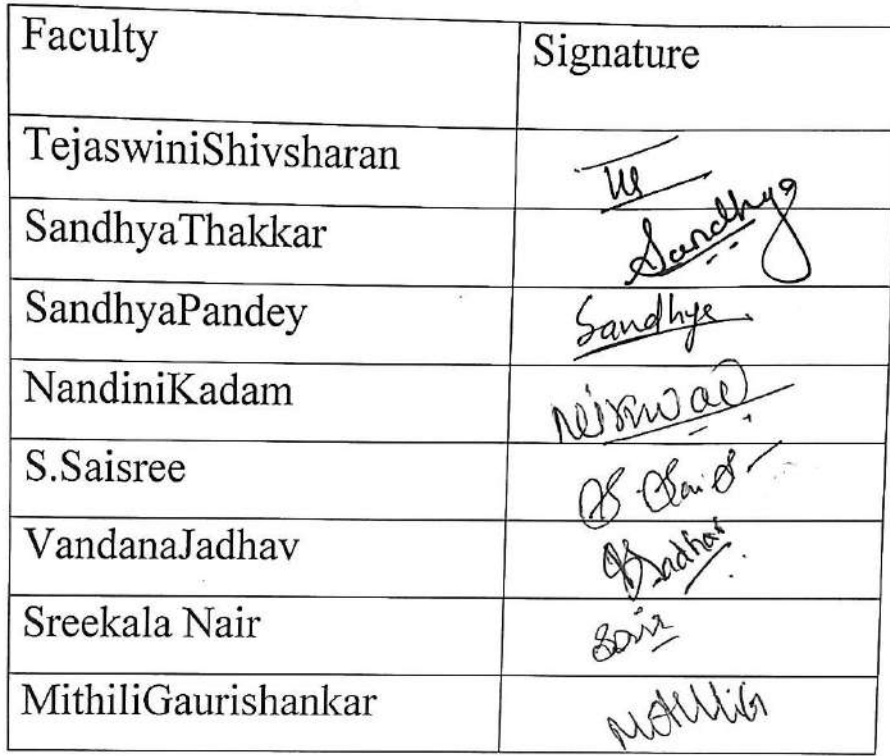 Faculty Signature
TejaswiniShivsharan
SandhyaThakkar Sandhya
SandhyaPandey Sandhya
NandiniKadam
S.Saisree
VandanaJadhav
Sreekala Nair
MithiliGaurishankar